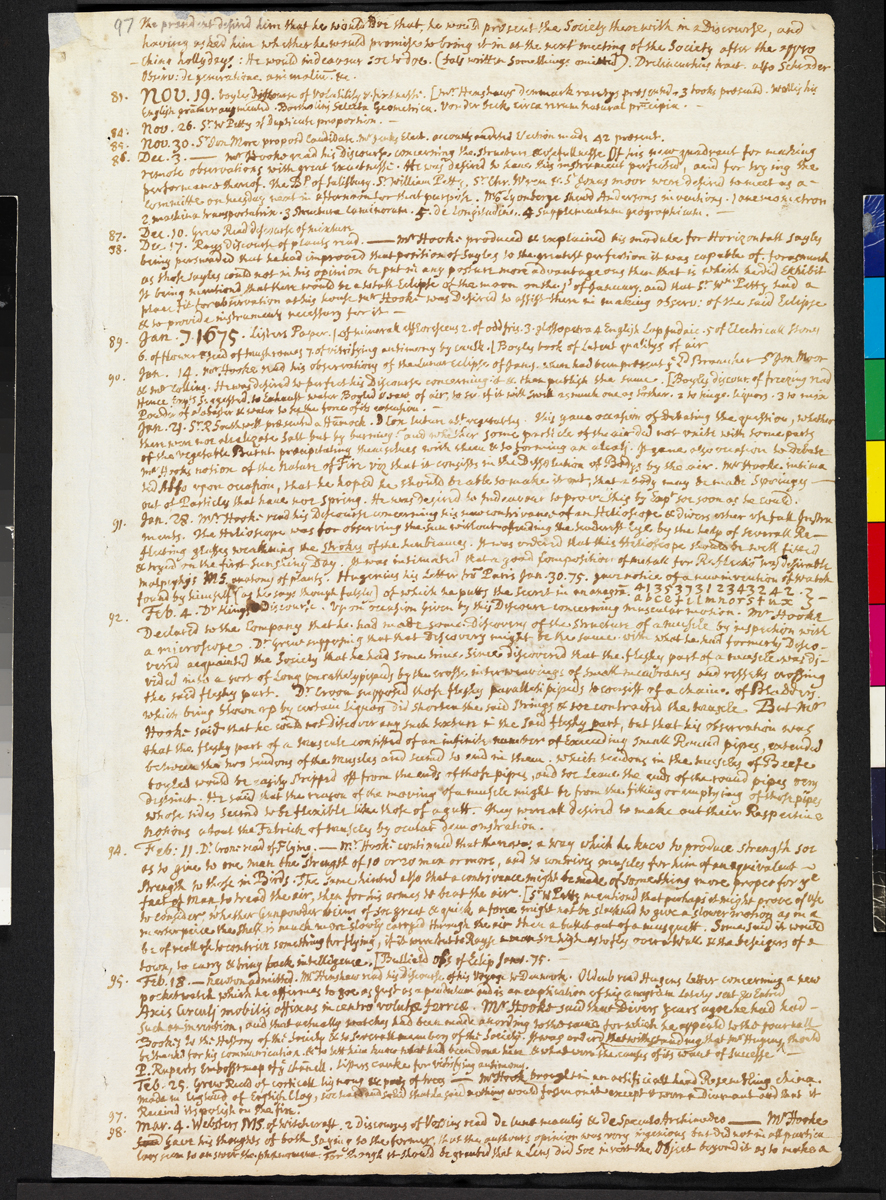 97 the president desired him that he would Doe that, he would present the Society therewith in a Discourse, and
having asked him whether he would promise to bring it in at the next meeting of the Society after the appro
ching hollydays: He would indeavour soe to doe. (sals written Somethings omitted). Drelincurtius tract. also Schrader
Observ: de generatione animalium. &c.
83. NOV. 19. boyles Discourse of Volatility & firstness. [Mr Henshaws denmark rarety presented. 3 books presented. Wallis his
English gramer augmented. Bartholins Selecta Geometrica. Vander beck circa rerum natural principia.
84. Nov. 26. Sr W Petty of Duplicate proportion.
85. Nov. 30. Sr Jon More proposd Candidate. Mr Elect. accounts audited Election made 42 present.
86. Dec. 3. — Mr Hooke read his Discourse concerning the structure & usefullnesse of his new quadrant for making
remote observations with great Exactnesse. He was desired to have this instrument perfected, and for trying the
performance thereof. The Bp of Salisbury. Sr William Petty, Sr Chr. Wren & Sr Jonas moor were desired to meet as a
Committe on tuesday next in afternoon for that purpose. Mr Lyonberge shewd Andersons inventions. 1 oneiron
2 machina transportatrix. 3 Structura Luminorum. 5. de Longitudine. 4 Supplementum geographicum. —
87. Dec. 10. Grew Read discourse of mixture
88. Dec. 17. Rays Discourse of plants read. — Mr Hooke produced & explained his module for Horizontall Sayles
being perswaded that he had improved that position of Sayles to the greatest perfection it was capable of. forasmuch
as those sayles could not in his opinion be put in any posture more advantageous then that is which he did Exhibit
It being mentioned that there would be a totall Eclipse of the moon on the 1st of January. and that Sr Wm Petty had a
place fit for observation at his house Mr Hooke was Desired to assist them in making observ: of the said Eclipse
& to provide instruments necessary for it —
89. Jan. 7. 1675. Listers Paper. 1 of minerall efforescens 2. of odd fris. 3. glossopetra 4 English Lap Judaic. 5 of Electricall stones
6. of flower & seed of mushromes 7. of vitrifying antimony by cauk. [Boyles book of Latent qualitys of air
90. Jan. 14. Mr Hooke read his observations of the Lunar eclipse of Jan 1. when had been present Ld Brouncker Sr Jon Moor
& Mr Collins. He was desired to perfect his Discourse concerning it & then publish the same. [Boyles discour. of freezing read
Hence Suggested. to Exhaust water Boyled & some of air, to try if it will work as much one as tother. 2 to hinge. liquors. 3 to mix
Powder of alabaster & water to try the force of its extension.
Jan. 21. Sr R Southwell presented a Hamock. D Con Lecture alt vegetables. This gave occasion of debating the question, whether
there were not alcalizate Salt but by burning? and whether some particle of the air did not unite with some parts
of the vegetable Burnt precipitating themselves with them & so forming an alcaly. It gave also occasion to debate
Mr Hookes notion of the nature of Fire viz that it consists in the Dissolution of Bodys by the air. Mr Hooke intima
ted Also upon occation, that he hoped he should be able to make it out that a body may be made Springy
out of Particles that have nor spring. He was desired to indeavour to prove this by Exp. soe soon as he could.
91. Jan. 28. Mr Hooke read his Discourse concerning his new contrivance of an Helioscope & divers other usefull Instru
ments. The Helioscope was for observing the sun without offending the tenderest Eye by the help of severall Re-
flecting glasses weakening the strokes of the sunbeames. It was ordered that this Helioscope should be well fitted
& tryed on the first sun shiny Day. It was intimated that a good Composition of metall for Reflection was desirable
Malpighys MS. anatomy of plants. Hugenius his Letter frõ Paris Jan. 30. 75. gave notice of a new invention of watch
found by himself (as he says though false) of which he puts the secret in an anagr. 4 1 3 5 3 7 3 1 2 3 4 3 2 4 2. 2.
a b c e f i l m n o r s t u x 3
92. Feb. 4. Dr Kings Discourse. Upon occasion given by this Discourse concerning muscular motion. Mr Hooke
Declared to the Company that he had made some Discovery of the Structure of a muscle by inspection with
a microscope. Dr Grew supposing that that Discovery might be the same with what he had formerly Disco-
vered acquainted the Society that he had some time since discovered that the fleshy part of a muscle was di-
vided into a sort of Long parallelipipeds by the crosse interweavings of small membranes and vessells crossing
the said fleshy part. Dr Croon supposed those fleshy parallelipipeds to consist of a chaine of Bladders
which being blown up by certain liquor did shorten the said strings & soe contracted the muscle But Mr
Hooke said that he could not discover any such texture in the said fleshy part, but that his observation was
that the fleshy part of a muscule consisted of an infinite number of Exceeding small Round pipes, extended
between the two tendons of the muscles and seemd to end in them. which tendons in the muscles of Beefe
boyled would be easily stripped off from the ends of those pipes, and soe Leave the ends of the round pipes very
distinct. He said that the reason of the moving of a muscle might be from the filling or emptying of those pipes
whose sides seemd to be flexible like those of a gutt. they were all desired to make out their Respective
notions about the Fabrick of muscles by ocular demonstration.
94. Feb: 11. Dr Crone read of Flying. — Mr Hook: continued that there was a way which he knew to produce strength soe
as to give to one man the strength of 10 or 20 men or more, and to contrive muscles for him of an equivalent
strength to those in Birds. The same hinted also that a contrivance might be made of something more proper for ye
feet of man to tread the air, then for his armes to beat the air. [Sr W Petty mentioned that perhaps it might prove of use
to consider whether Gunpowder being of soe great & quick a force might not be slackend to give a slower motion as in a
morterpiece the shell is much more slowly carryed through the air then a bullet out of a musquett. Some said it would
be of reall use to contrive something for flying, if it were but to Rayse a man soe high as to fly over a Wall & the beseigers of a
town, to carry & bring back intelligence. [Bullield obs of Eclip Janr. 75. —
95. Feb. 18. — newton admitted. Mr Hinshaw read his discourse of his Voyage to Denmark. Oldenb read Hugens Letter concerning a new
pocket watch which he affirmes to goe as just as a pendulum and is an explication of his anagram Lately sent to Entred
Axis circuli mobilis affixus in centro volutæ ferreæ. Mr Hooke said that Divers years agoe he had had
such an invention, and that actually watches had been made according to the same for which he appeald to the journall
Books to the History of the Society & to severall members of the Society. It was orderd that notwithstanding that Mr Hugens should
be thankd for his communication. & to lett him know what had been done here & what were the causes of its want of successe
P. Ruperts Embost map of ye channell. Listers cauke for vitrifying antimony.
Feb. 25. Grew Read of corticall lignous & pithy of trees — Mr Hook brought in an artificiall hard Resembling china.
made in England of English Clay, soe hard and solid that he said nothing would fasten on it except it were a Diamant and that it
97. Received its polish in the fire.
98. Mar. 4. Websters MS. of Witchcraft. 2 Discourses of Vossius read De lunæ maculis & de Speculo Archimedeo — Mr Hooke
gave his thoughts of both Saying to the former, that the authours opinion was very ingenious but did not in all particu
lars seem to answer the phenomena. For though it should be granted that a Lens did soe invert the Object beyond it as to make a